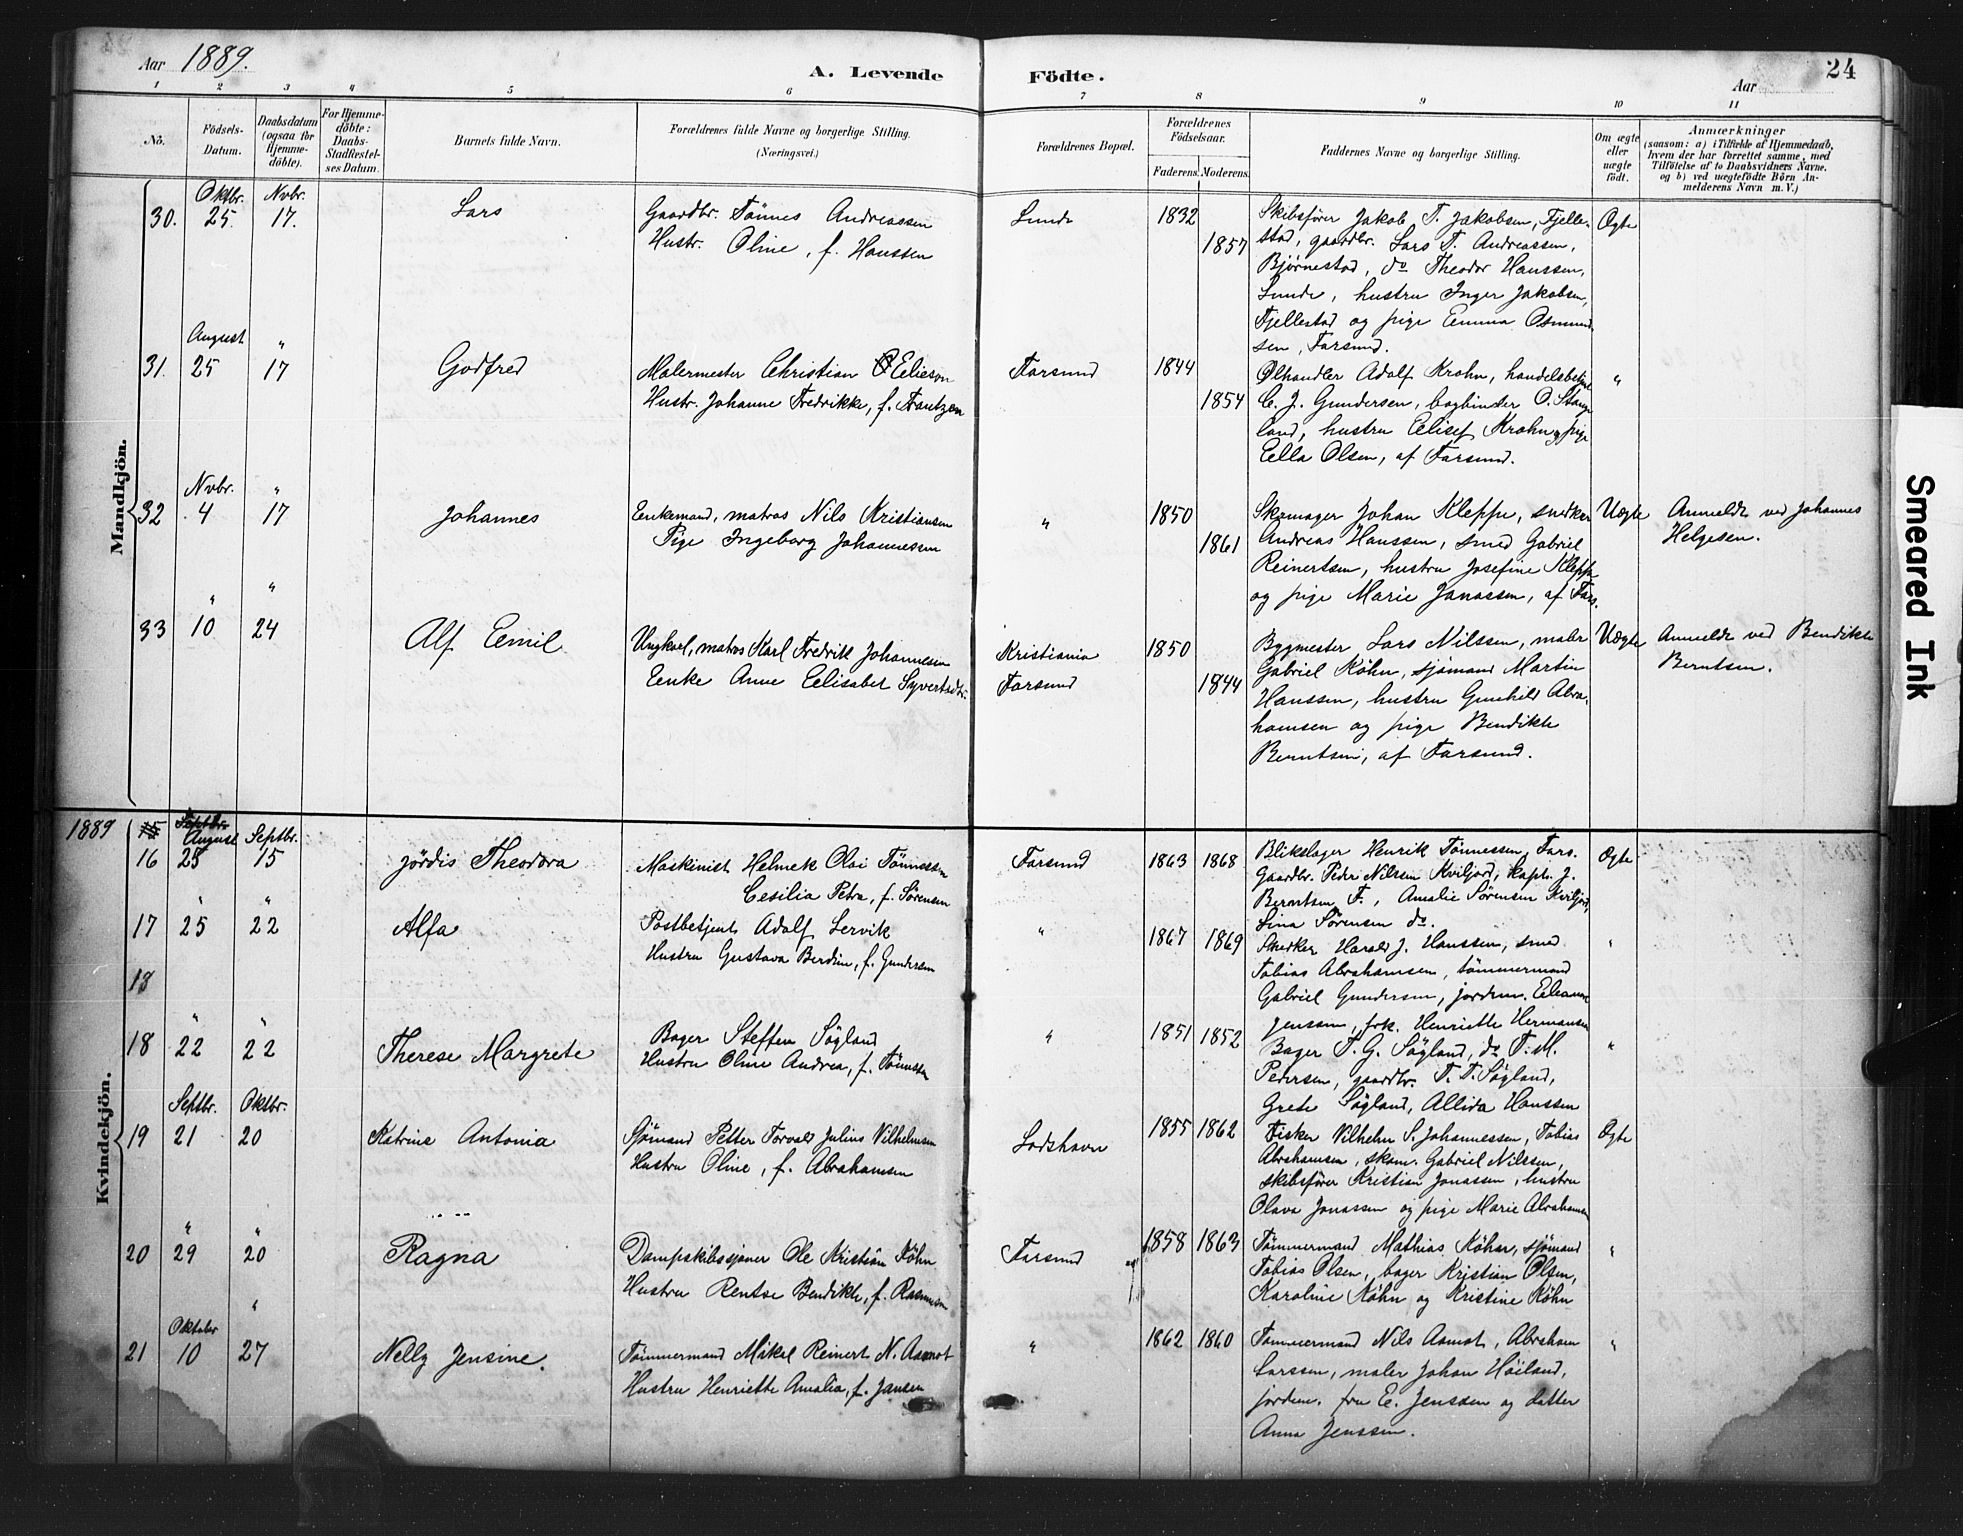 Aar 1889.
A. Levende Födte.
Aar
24
1 2 3 4 5 6 7 8 9 10 11
Nô.
Födsels-
Datum.
Daabsdatum
(ogsaa for
Hjemme-
döbte).
For Hjemme-
döbte:
Daabs-
Stadfæstel-
ses Datum.
Barnets fulde Navn.
Forældrenes fulde Navne og borgerlige Stilling.
(Næringsvei.)
Forældrenes Bopæl.
Forældrenes
Födselsaar.
Faderens. Moderens.
Faddernes Navne og borgerlige Stilling.
Om ægte
eller
uægte
födt.
Anmærkninger
(saasom: a) i Tilfælde af Hjemmedaab,
hvem der har forrettet samme, med
Tilföielse af to Daabsvidners Navne,
og b) ved uægtefödte Börn An-
melderens Navn m. V.)
Mandkjön.
Oktbr. Nvbr.
30. 25. 17. Lars
Gaardbr. Tönnes Andreassen
Hustr. Oline, f. Hanssen
Lunde
1832
1857
Skibsfører Jakob T. Jakobsen, Fjelle-
stad, gaardbr. Lars T. Andreassen,
Bjørnestad, do Theodor Hanssen,
Lunde, hustru Inger Jakobsen,
Fjellestad og pige Emma Osmund-
sen, Farsund.
Ægte
August "
31. 25 17 Godfred
Malermester Christian Eelieson
Hustr. Johanne Fredrikke, f. Frantzen
Farsund
1844
1854
Ølhandler Adolf Krohn, handelsbetjent
C. J. Gundersen, bogbinder O. Stange-
land, hustru Eelisef Krohn og pige
Eella Olsen, af Farsund.
"
Nvbr. "
32 4 17 Johannes
Eenkemand, matros Nils Kristiansen
Pige Ingeborg Johannessen
"
1850
1861
Skomager Johan Kleppe, snedker
Andreas Hanssen, smed Gabriel
Reinertsen, hustru Josefine Kleppe
og pige Marie Janassen, af Fars.
Uægte
Anmeldt ved Johannes
Helgesen.
" "
33 10 24 Alf Eemil
Ungkarl, matros Karl Fredrik Johannesen
Eenke Anne Eelisabet Syvertsdtr.
Kristiania
Farsund
1850
1844
Bygmester Lars Nilssen, maler
Gabriel Köhn, sjömand Martin
Hanssen, hustru Gunhild Abra-
hamsen og pige Bendikte
Berntsen, af Farsund.
Uægte
Anmeldt ved Bendikte
Berntsen.
1889
Kvindekjön.
15 Septbr.
August Septbr.
16 25 15 Jördis Theodora
Maskinist Helmek Olai Tönnessen
Cesilia Petra, f. Sörensen
Farsund
1863 1868
Blikslager Henrik Tönnessen, Fars.
Gaardbr. Peder Nilssen Kviljord, Kapt. J.
Berntsen F., Amalie Sörensen Kviljord,
Lina Sörensen do.
Ægte
" "
17 25 22 Alfa
Postbetjent Adolf Lervik
Hustru Gustava Berdine, f. Gundersen
"
1867 1869
Snedker Harald J. Hanssen, smed
Tobias Abrahamsen, tömmermand
Gabriel Gundersen, jordem. Eeleanore
Jenssen, frk. Henriette Hermansen
"
18
" "
18 22 22 Therese Margrete
Bager Steffen Sögland
Hustru Oline Andrea, f. Tönnessen
"
1851 1852
Bager T. G. Sögland, do T. M.
Pedersen, gaardbr. T. T. Sögland,
Grete Sögland, Allida Hanssen
"
Septbr. Oktbr.
19 21 20 Katrine Antonia
Sjömand Petter Torvald Julius Vilhelmsen
Hustru Oline, f. Abrahamsen
Lodshavn
1855 1862
Fisker Vilhelm S. Johannessen, Tobias
Abrahamsen, skom. Gabriel Nilssen,
skibsfører Kristian Jonassen, hustru
Olava Jonassen og pige Marie Abrahamsen
Ægte
" "
20 29 20 Ragna
Dampskibssjöner Ole Kristian Köhn
Hustru Rentse Bendikte, f. Rasmussen
Farsund
1858 1863
Tömmermand Mathias Köhn, sjömand
Tobias Olsen, bager Kristian Olsen,
Karoline Köhn og Kristine Köhn
"
Oktober "
21 10 27 Nelly Jensine.
Tömmermand Mikal Reinert N. Aamot
Hustru Henriette Amalia, f. Jansen
"
1862 1860
Tömmermand Nils Aamot, Abraham
Larssen, maler Johan Höiland,
jordem. fru E. Jenssen og datter
Anna Jenssen.
"
Smeared Ink